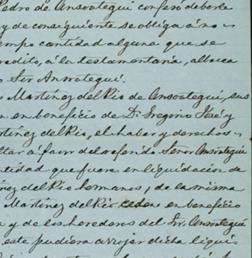 Pedro de Ansoátegui confeso deberle
y de consiguiente se obliga á no
empo cantidad alguna que se
redito, a la testamentaria, albacea
Sor Ansoategui.
Martinez del Rio de Ansoategui, sus
en beneficio de D. Gregorio José y
tinez del Rio, el haber y derechos
ltar á favor del referido Señor Ansoategui
ntidad que fuere en liquidacion de
nez del Rio hermanos; de la misma
Martinez del Rio ceden en beneficio
y de los herederos del Sr. Ansoategui
este pudiera arrojar dicha liqui